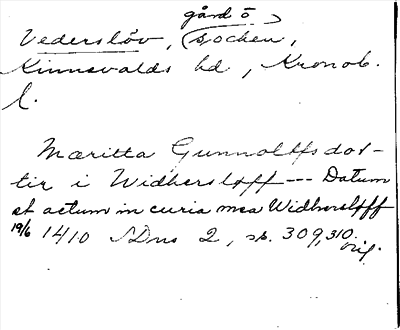 gård o
Vederslöv, socken,
Kinnevalds hd, Kronob.
l.
Mæritta Gunnolffsdot-
tir i Widhersløff --- Datum
et actum in curia mea Widhersløff
19/6 1410 SDns 2, s. 309, 310.
orig.